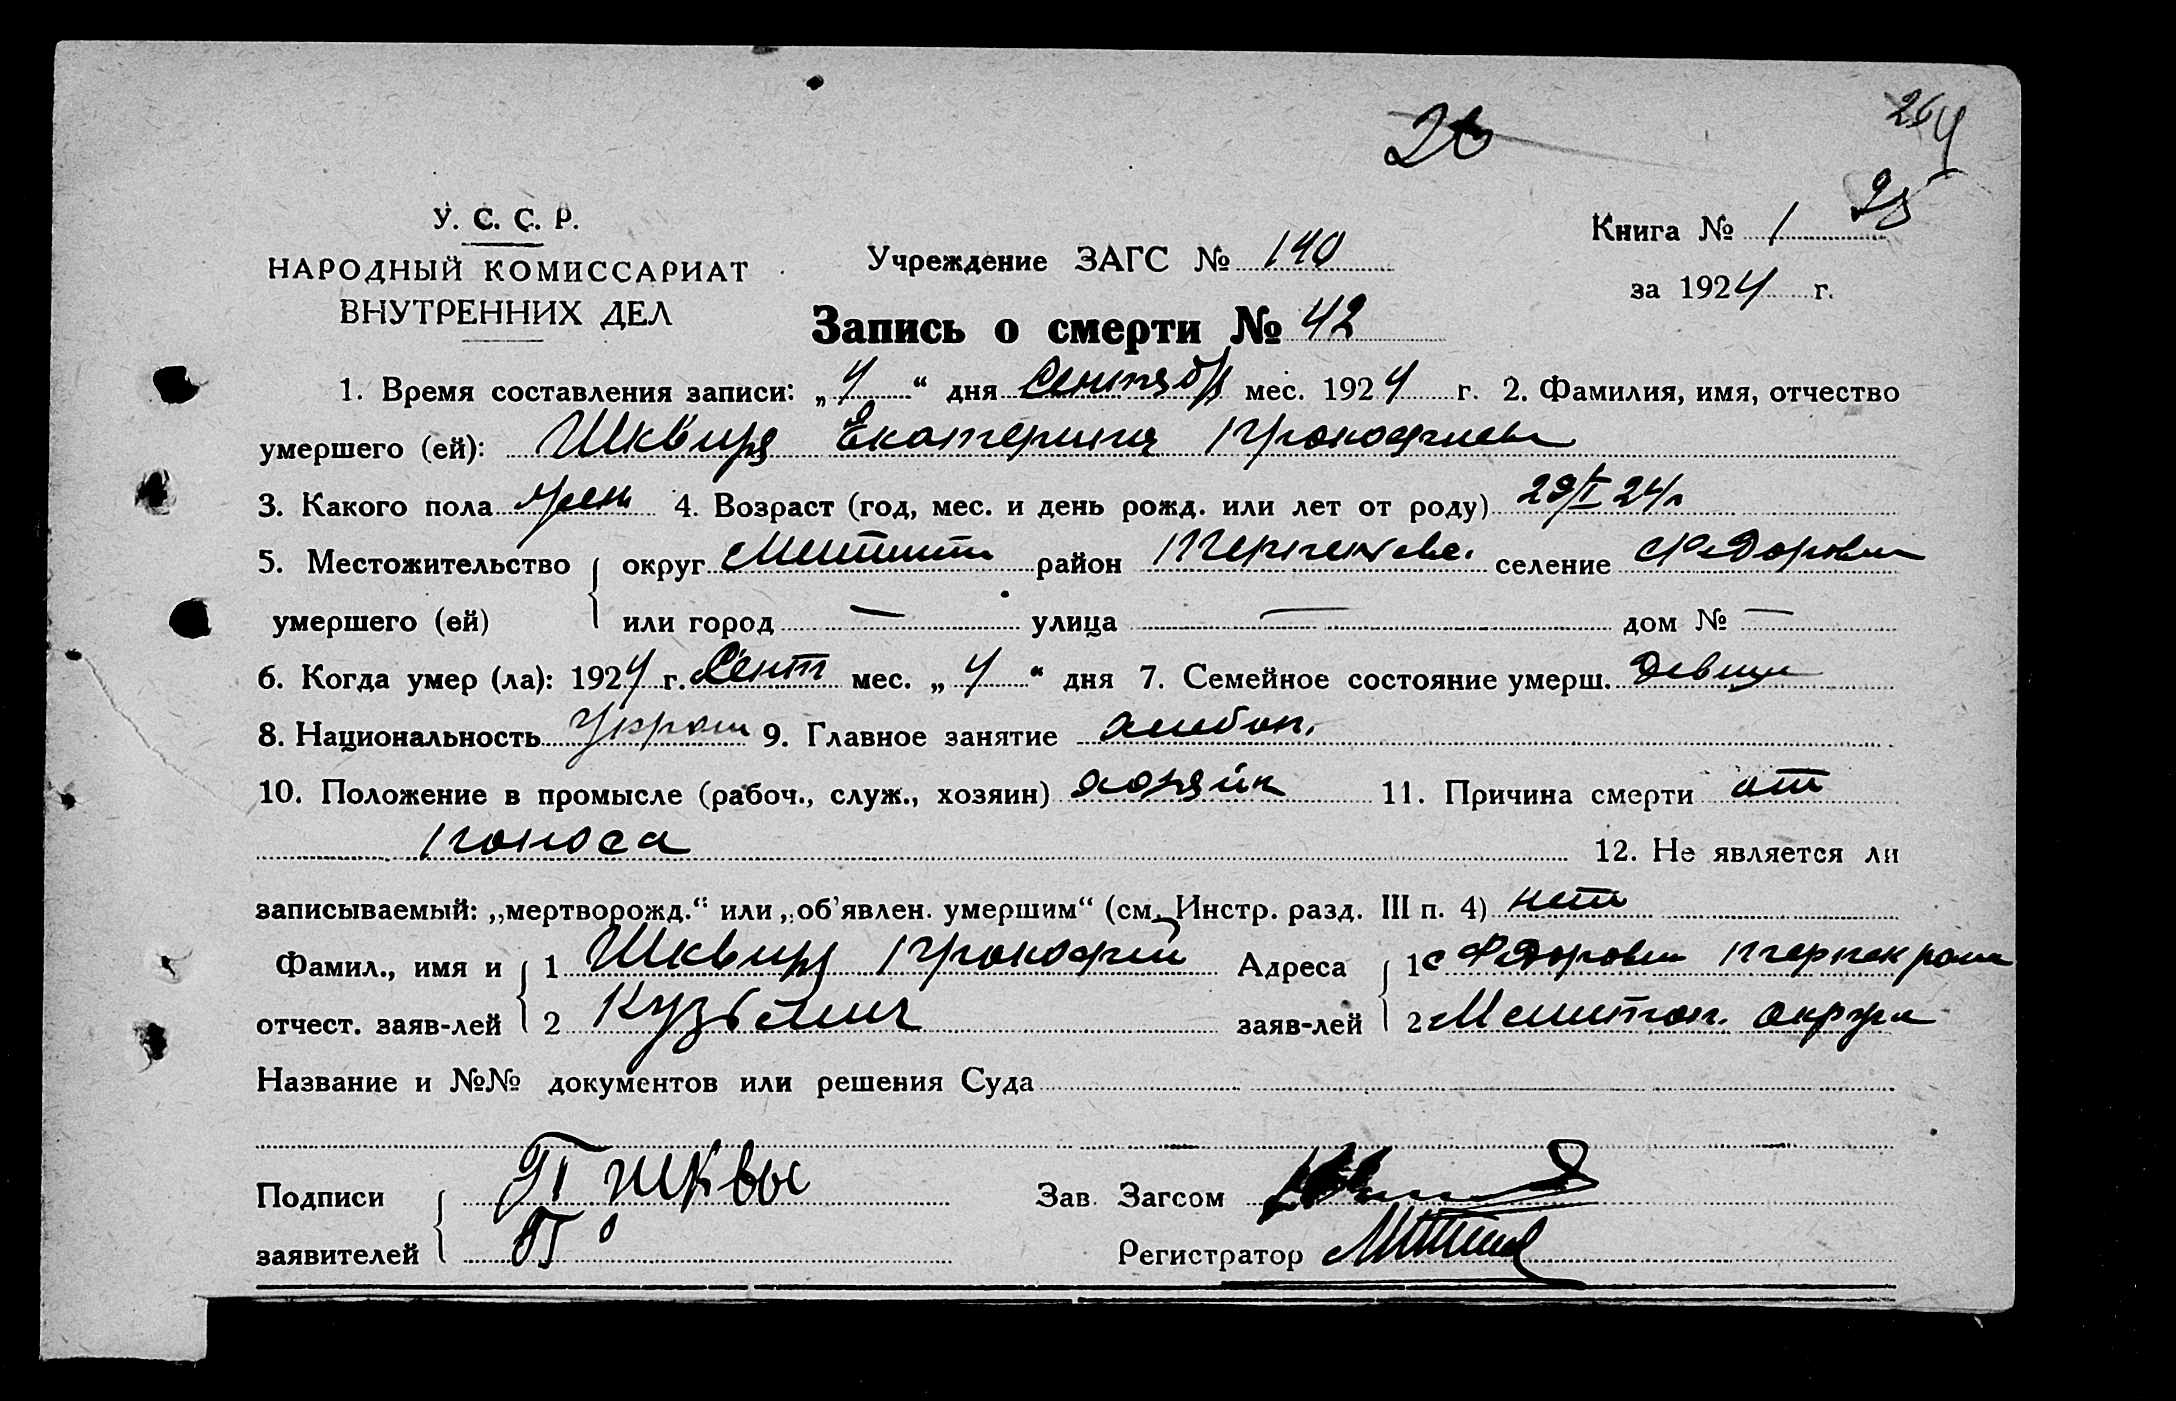 26
264
25
У. С. С. Р.
НАРОДНЫЙ КОМИССАРИАТ
ВНУТРЕННИХ ДЕЛ
Учреждение ЗАГС № 140
Книга № 1
за 1924 г.
Запись о смерти № 42
1. Время составления записи: „4“ дня Сентября мес. 1924 г. 2. Фамилия, имя, отчество
умершего (ей): Шквиря Екатерина Прокофиев
3. Какого пола жен 4. Возраст (год, мес. и день рожд. или лет от роду) 29/I 24 г
5. Местожительство округ район селение Федоровка
умершего (ей) или город — улица — дом № —
6. Когда умер (ла): 1924 г. Сент мес. „4“ дня 7. Семейное состояние умерш. девица
8. Национальность Украин 9. Главное занятие хлебоп.
10. Положение в промысле (рабоч., служ., хозяин) хозяин 11. Причина смерти от
поноса 12. Не является ли
записываемый: „мертворожд.“ или „об’явлен. умершим“ (см. Инстр. разд. III п. 4) нет
Фамил., имя и 1 Шквиря Прокофий Адреса 1 с Федоровка
отчест. заяв-лей 2 Кузьмич заяв-лей 2 Мелитоп. округа
Название и №№ документов или решения Суда
Подписи Зав. Загсом
заявителей Регистратор